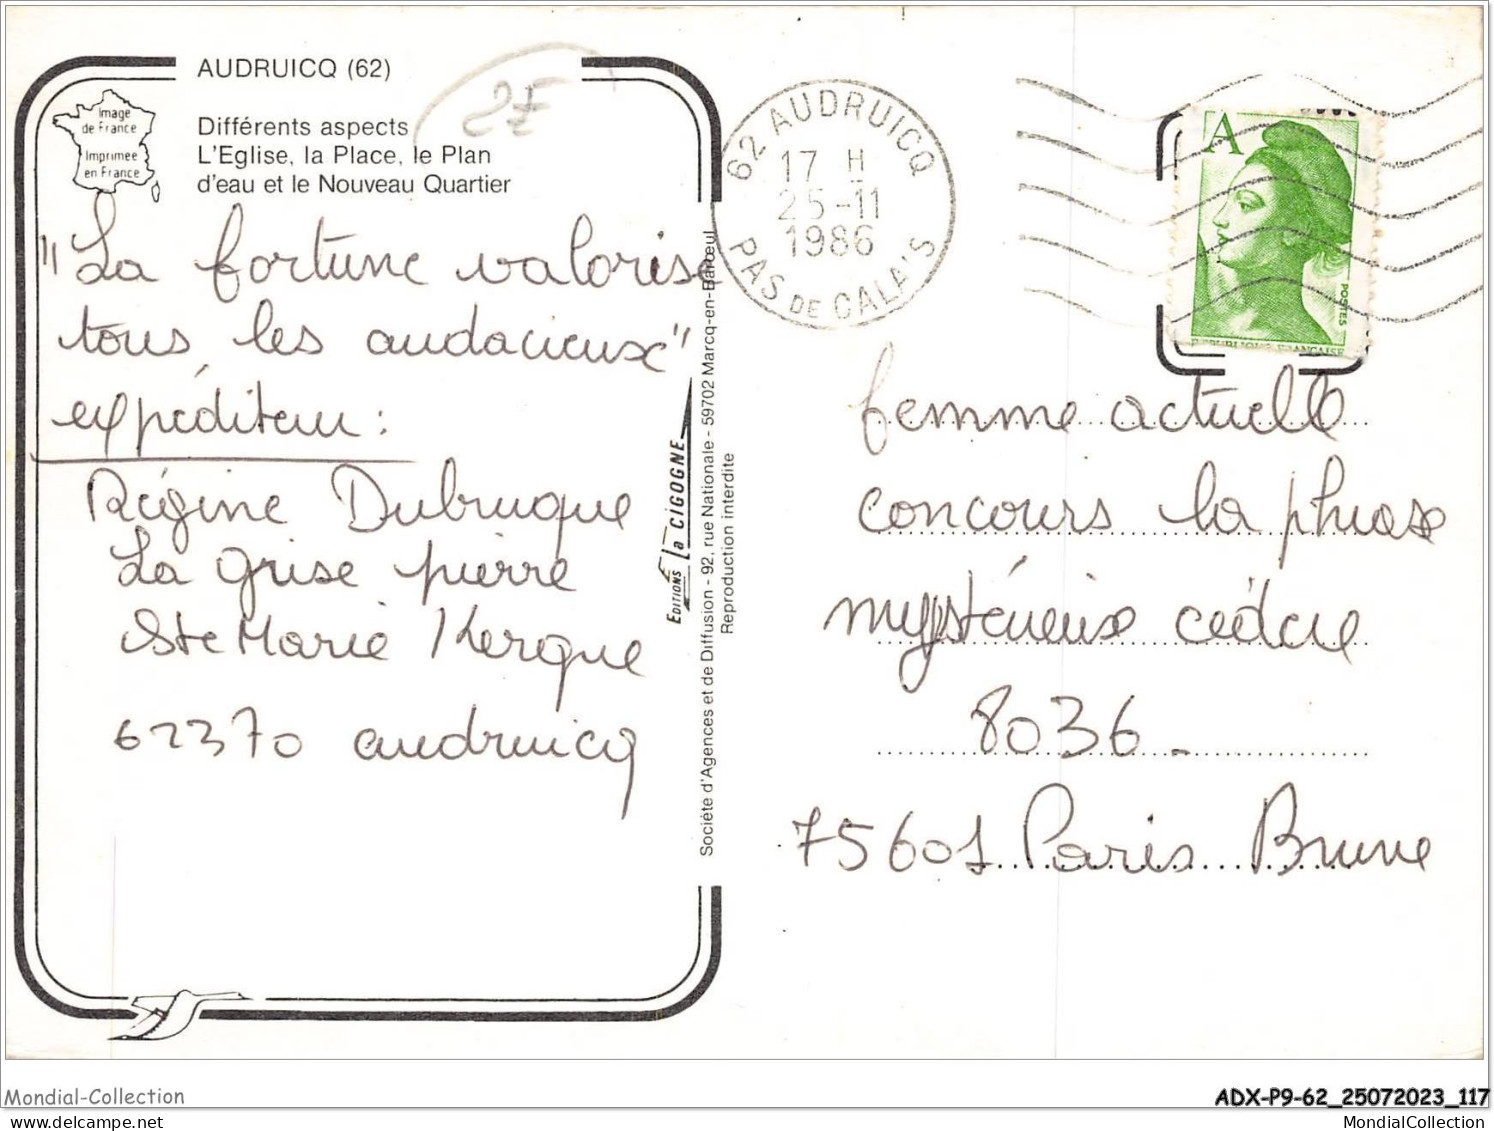 AUDRUICQ (62)
Image
de France
Imprimée
en France
Différents aspects
L'Eglise, la Place, le Plan
d'eau et le Nouveau Quartier
"La fortune valorise
tous les audacieux"
expéditeur :
Régine Dubruque
La grise pierre
Ste Marie Kerque
62370 audruicq
EDITIONS la CIGOGNE
Société d'Agences et de Diffusion - 92, rue Nationale - 59702 Marcq-en-Barœul
Reproduction interdite
62 AUDRUICQ
17 H
25-11
1986
PAS DE CALAIS
A
POSTES
REPUBLIQUE FRANÇAISE
femme actuelle
concours la phrase
mystérieuse cédex
8036 -
75601 Paris Brune
Mondial-Collection
ADX-P9-62_25072023_117
MondialCollection